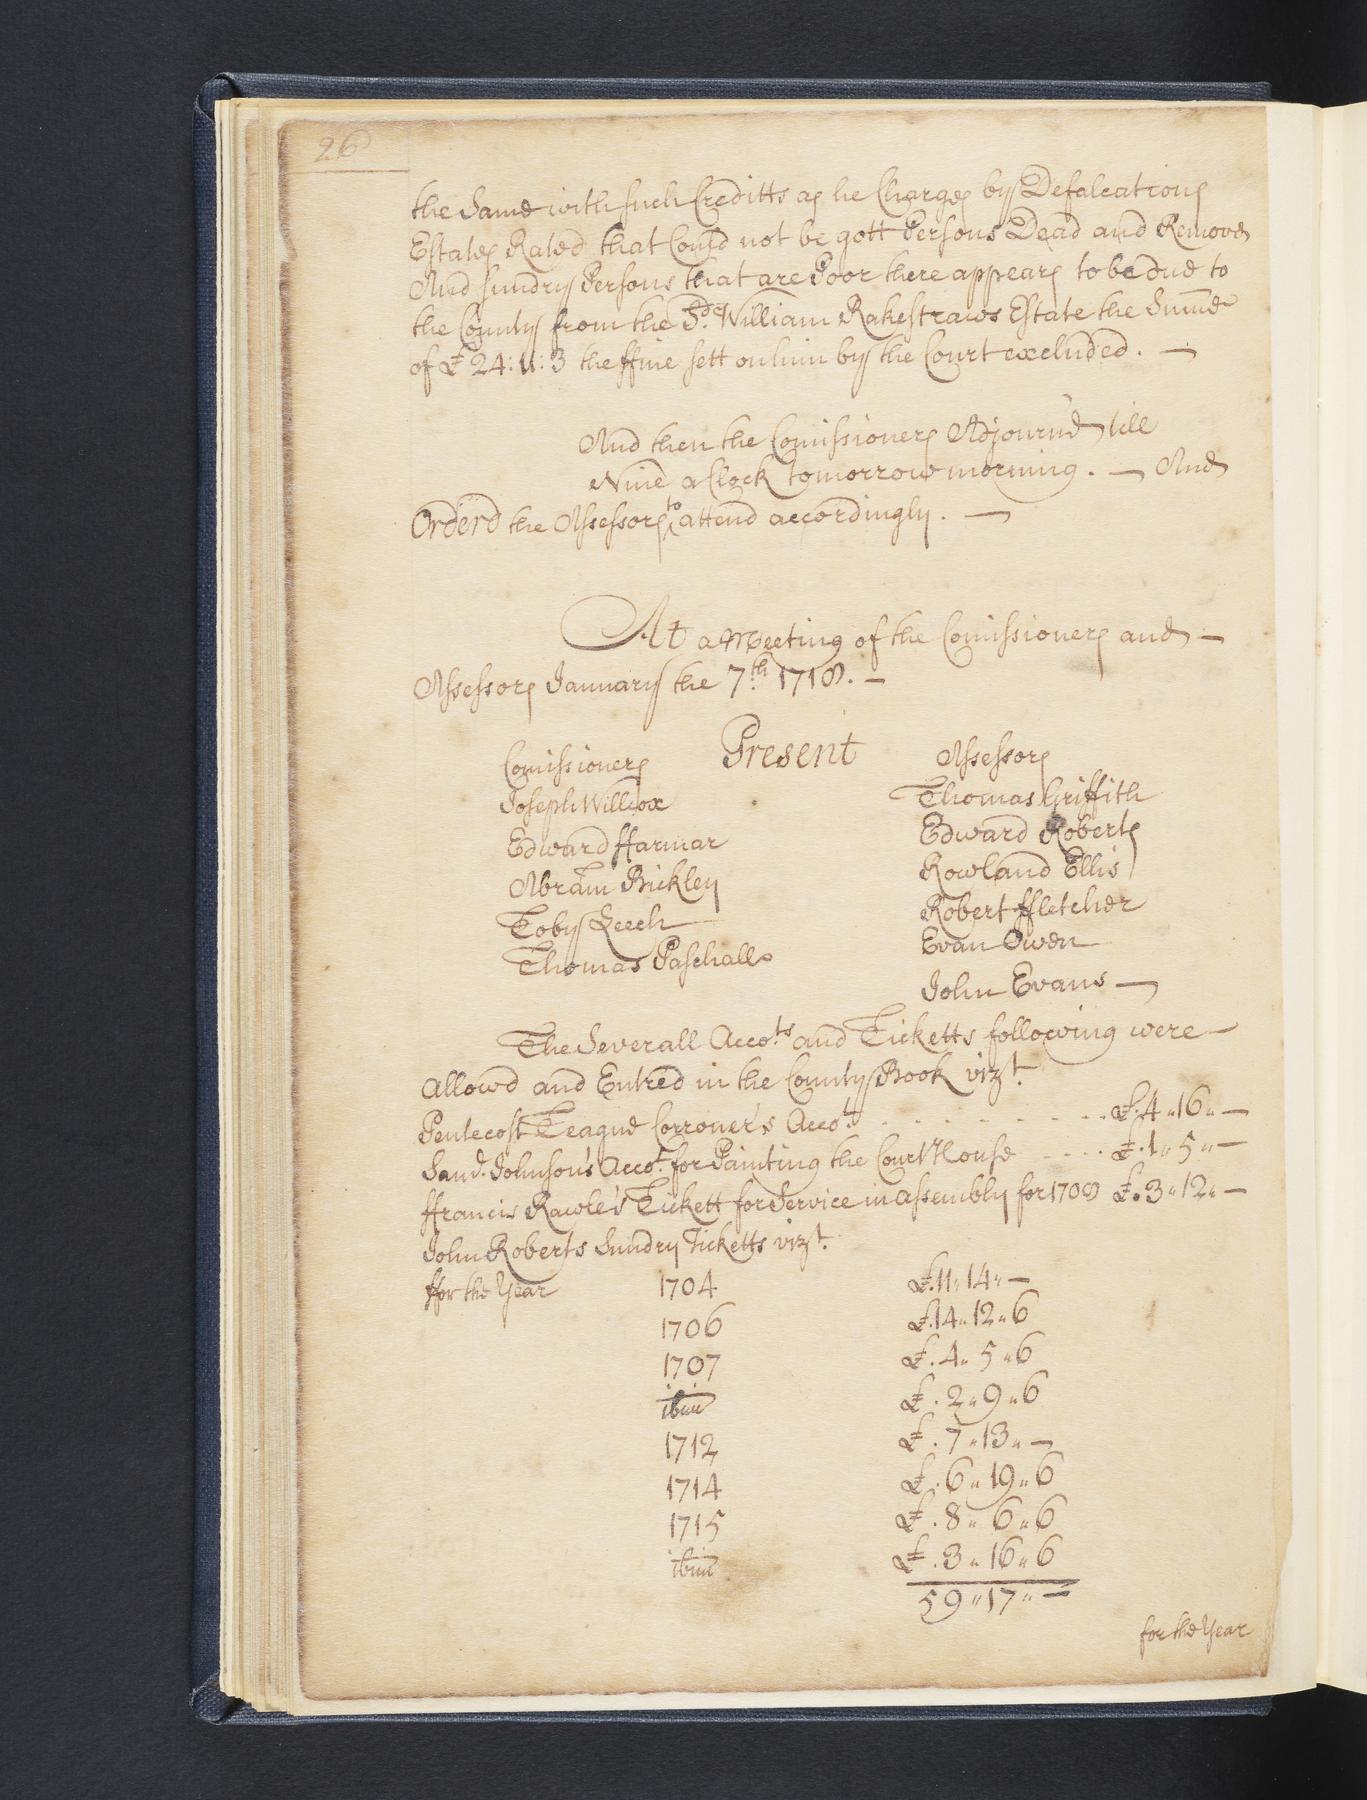 26
the Same with such Creditts as he Charges by Defalcations
Estates Rated that Could not be gott Persons Dead and Removd
And sundry Persons that are Poor there appears to be due to
the County from the Sd. William Rakestraws Estate the Summe
of £ 24:11:3 the ffine sett on him by the Court excluded. —
And then the Comissioners Adjournd till
Nine a Clock tomorrow morning. — And
Orderd the Assessors to attend accordingly. —
At a Meeting of the Comissioners and —
Assessors January the 7th 1718. —
Present
Comissioners Assessors
Joseph Willcox Thomas Griffith
Edward ffarmar Edward Roberts
Abram Bickley Rowland Ellis
Toby Leech Robert ffletcher
Thomas Paschall Evan Owen
John Evans —
The Severall Accots and Ticketts following were —
allowd and Entred in the County Book vizt.
Pentecost Teague Corroner's Accot. . . . . . . . . £.4"16"—
Saud. Johnson's Accot. for Painting the Court House . . . . £.1"5"—
ffrancis Rawle's Tickett for Service in assembly for 1708 £.3"12"—
John Roberts Sundry Ticketts vizt.
ffor the Year 1704 £.11"14"—
1706 £.14"12"6
1707 £.4"5"6
ibim £.2"9"6
1712 £.7"13"—
1714 £.6"19"6
1715 £.8"6"6
ibim £.3"16"6
59"17"—
for the Year